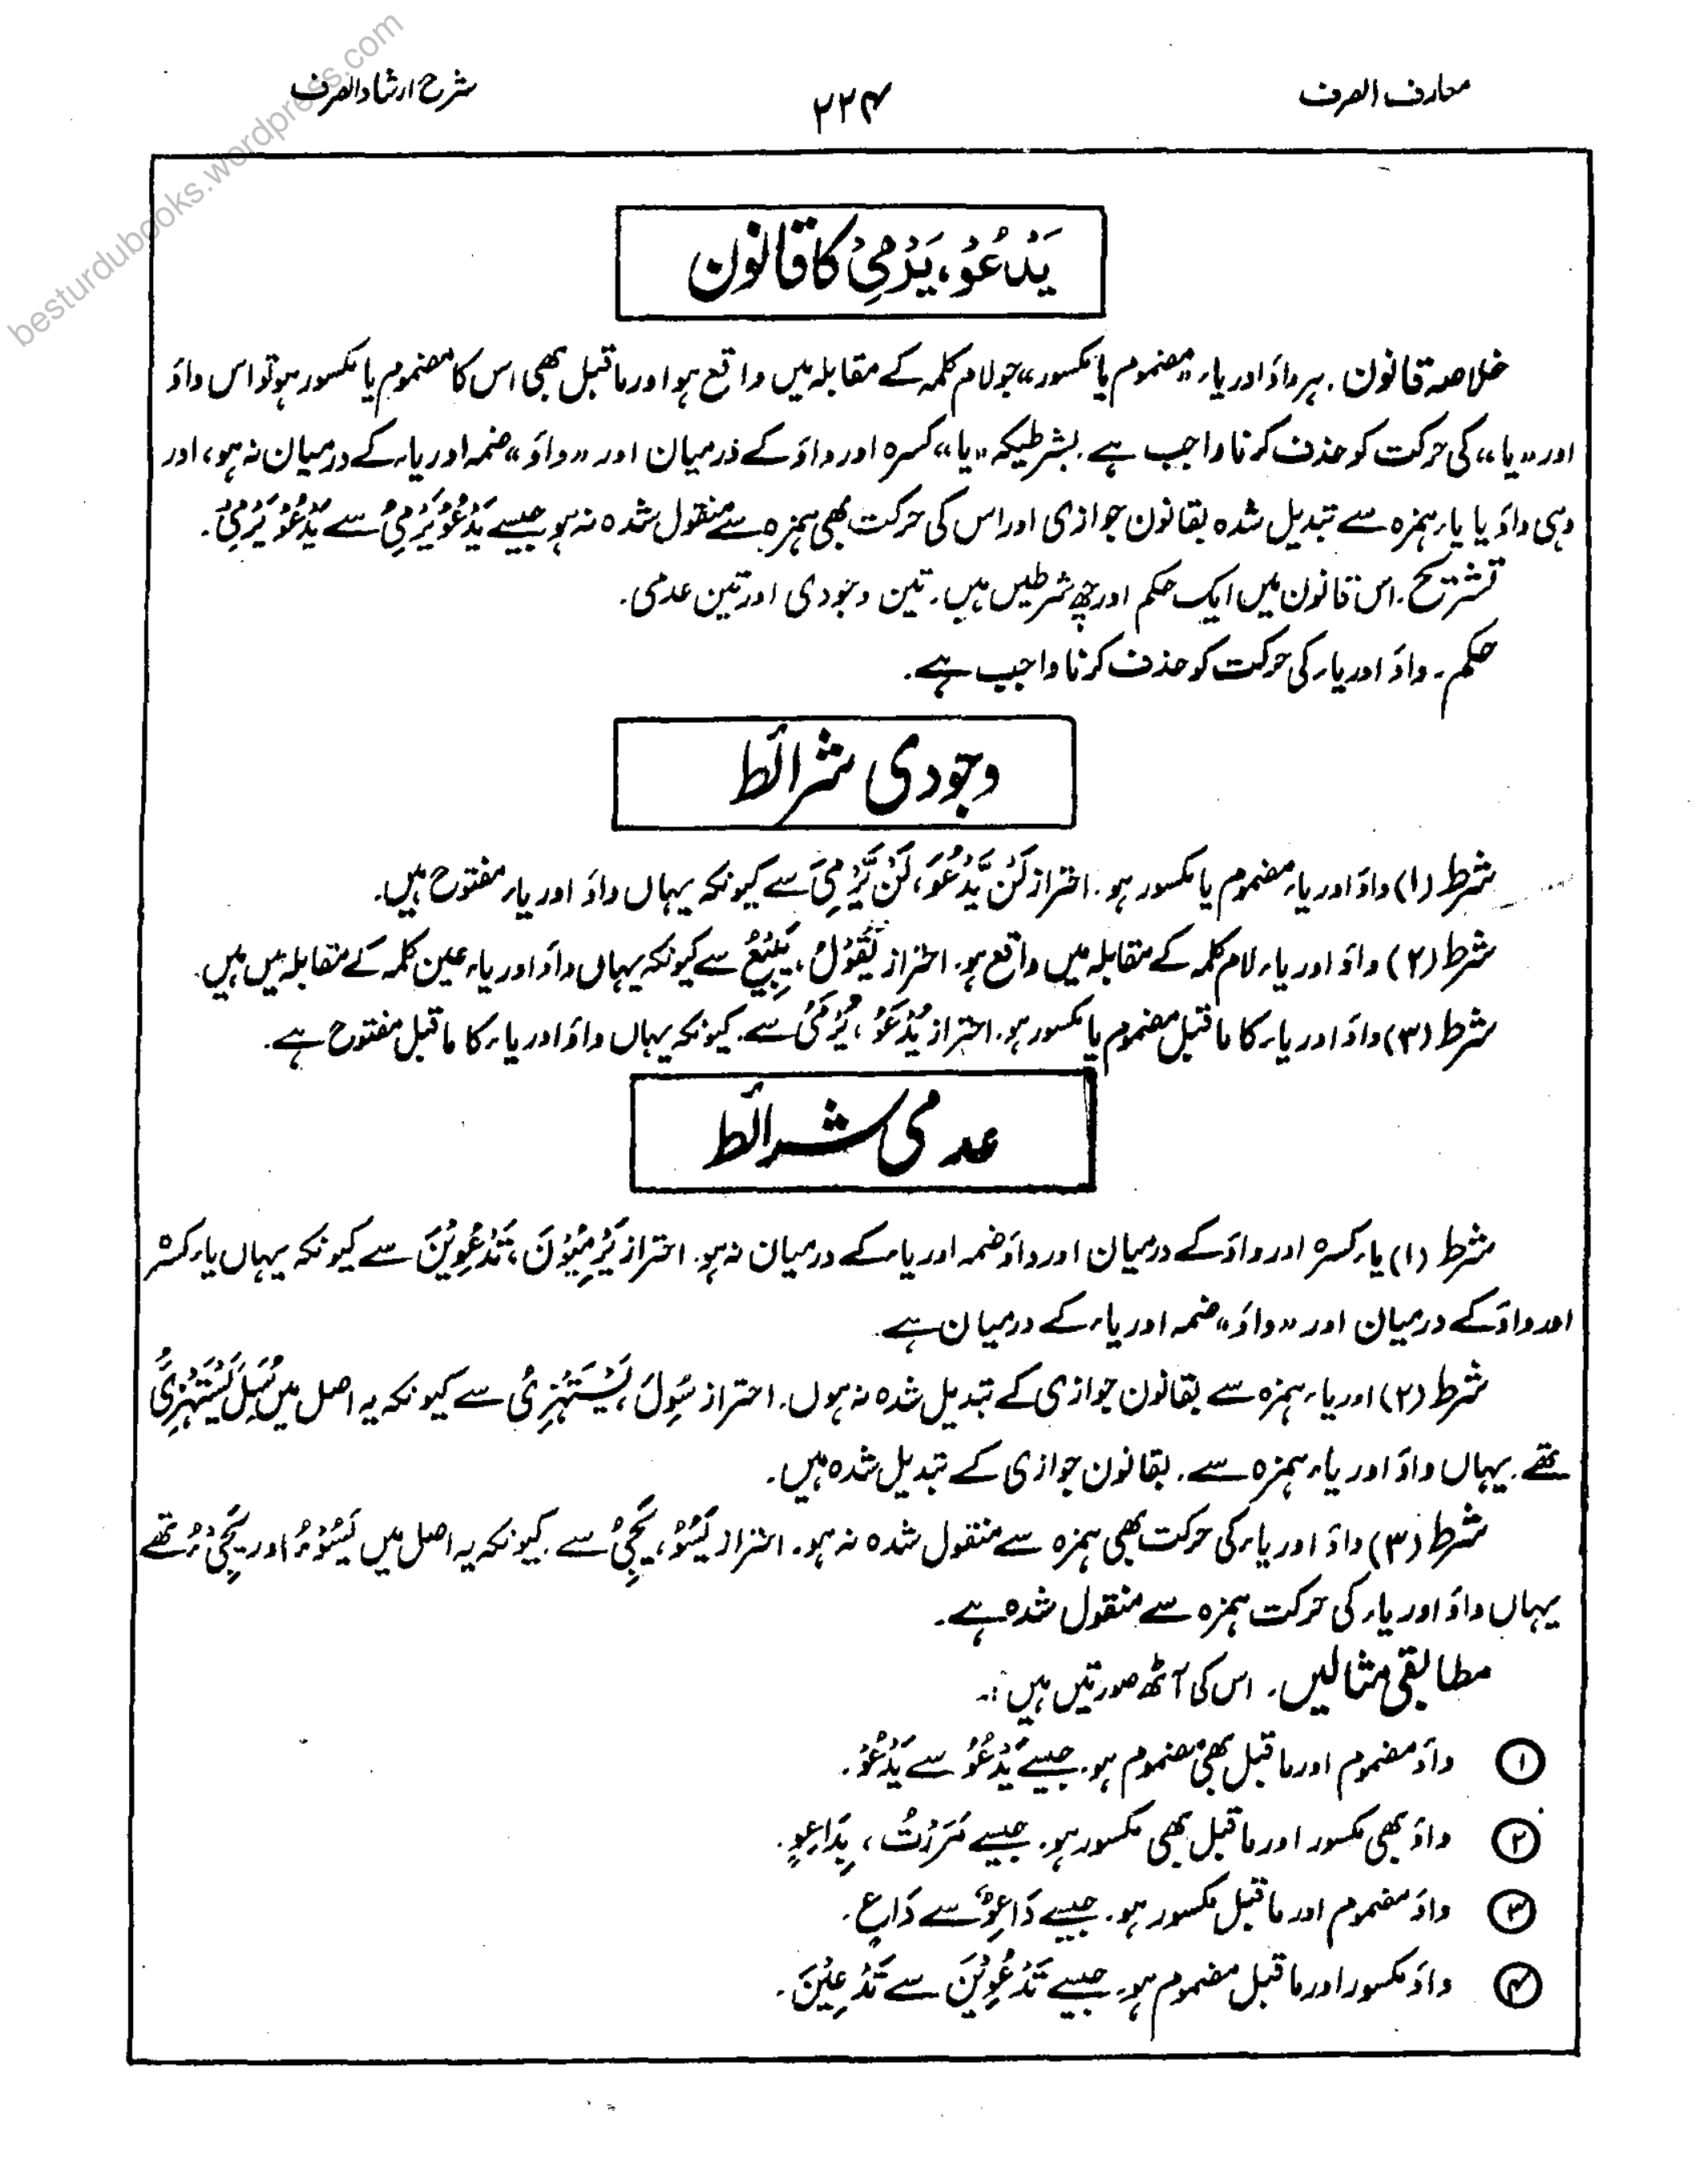 معارف الصرف
۲۲۴
شرح ارشاد الصرف
besturdubooks.wordpress.com
یَدْعُوْ، یَرْمِیْ کا قانون
خلاصہ قانون . ہر واؤ اور یاء "مضموم یا مکسور" جو لام کلمہ کے مقابلہ میں واقع ہو اور ماقبل بھی اس کا مضموم یا مکسور ہو تو اس واؤ
اور "یا" کی حرکت کو حذف کرنا واجب ہے . بشرطیکہ "یا" کسرہ اور واؤ کے درمیان اور "واؤ" ضمہ اور یاء کے درمیان نہ ہو، اور
وہی واؤ یا یاء ہمزہ سے تبدیل شدہ بقانون جوازی اور اس کی حرکت بھی ہمزہ سے منقول شدہ نہ ہو جیسے یَدْعُوُ یَرْمِیُ سے یَدْعُوْ یَرْمِیْ.
تشریح . اس قانون میں ایک حکم اور چھ شرطیں ہیں . تین وجودی اور تین عدمی.
حکم . واؤ اور یاء کی حرکت کو حذف کرنا واجب ہے.
وجودی شرائط
شرط (۱) واؤ اور یاء مضموم یا مکسور ہو . احتراز لَنْ یَّدْعُوَ، لَنْ یَّرْمِیَ سے کیونکہ یہاں واؤ اور یاء مفتوح ہیں.
شرط (۲) واؤ اور یاء لام کلمہ کے مقابلہ میں واقع ہو . احتراز یَقُوْلُ، یَبِیْعُ سے کیونکہ یہاں واؤ اور یاء عین کلمہ کے مقابلہ میں ہیں.
شرط (۳) واؤ اور یاء کا ماقبل مضموم یا مکسور ہو . احتراز یُدْعَوُ، یُرْمَیُ سے . کیونکہ یہاں واؤ اور یاء کا ماقبل مفتوح ہے.
عدمی شرائط
شرط (۱) یاء کسرہ اور واؤ کے درمیان اور واؤ ضمہ اور یاء کے درمیان نہ ہو . احتراز یَرْمِیُوْنَ، تَدْعُوِیْنَ سے کیونکہ یہاں یاء کسرہ
اور واؤ کے درمیان اور "واؤ" ضمہ اور یاء کے درمیان ہے.
شرط (۲) اور یاء ہمزہ سے بقانون جوازی کے تبدیل شدہ نہ ہوں . احتراز سُوِلَ، یَسْتَهْزِیُ سے کیونکہ یہ اصل میں سُئِلَ یَسْتَهْزِئُ
تھے . یہاں واؤ اور یاء ہمزہ سے . بقانون جوازی کے تبدیل شدہ ہیں.
شرط (۳) واؤ اور یاء کی حرکت بھی ہمزہ سے منقول شدہ نہ ہو . احتراز یَسُوُ، یَجِیُ سے . کیونکہ یہ اصل میں یَسُوْءُ اور یَجِیْءُ تھے
یہاں واؤ اور یاء کی حرکت ہمزہ سے منقول شدہ ہے.
مطابقی مثالیں . اس کی آٹھ صورتیں ہیں :-
۱ واؤ مضموم اور ماقبل بھی مضموم ہو . جیسے یَدْعُوُ سے یَدْعُوْ.
۲ واؤ بھی مکسور اور ماقبل بھی مکسور ہو . جیسے مَرَرْتُ، بِدَاعِوٍ.
۳ واؤ مضموم اور ماقبل مکسور ہو . جیسے دَاعِوٌ سے دَاعٍ.
۴ واؤ مکسور اور ماقبل مضموم ہو . جیسے تَدْعُوِیْنَ سے تَدْعِیْنَ.